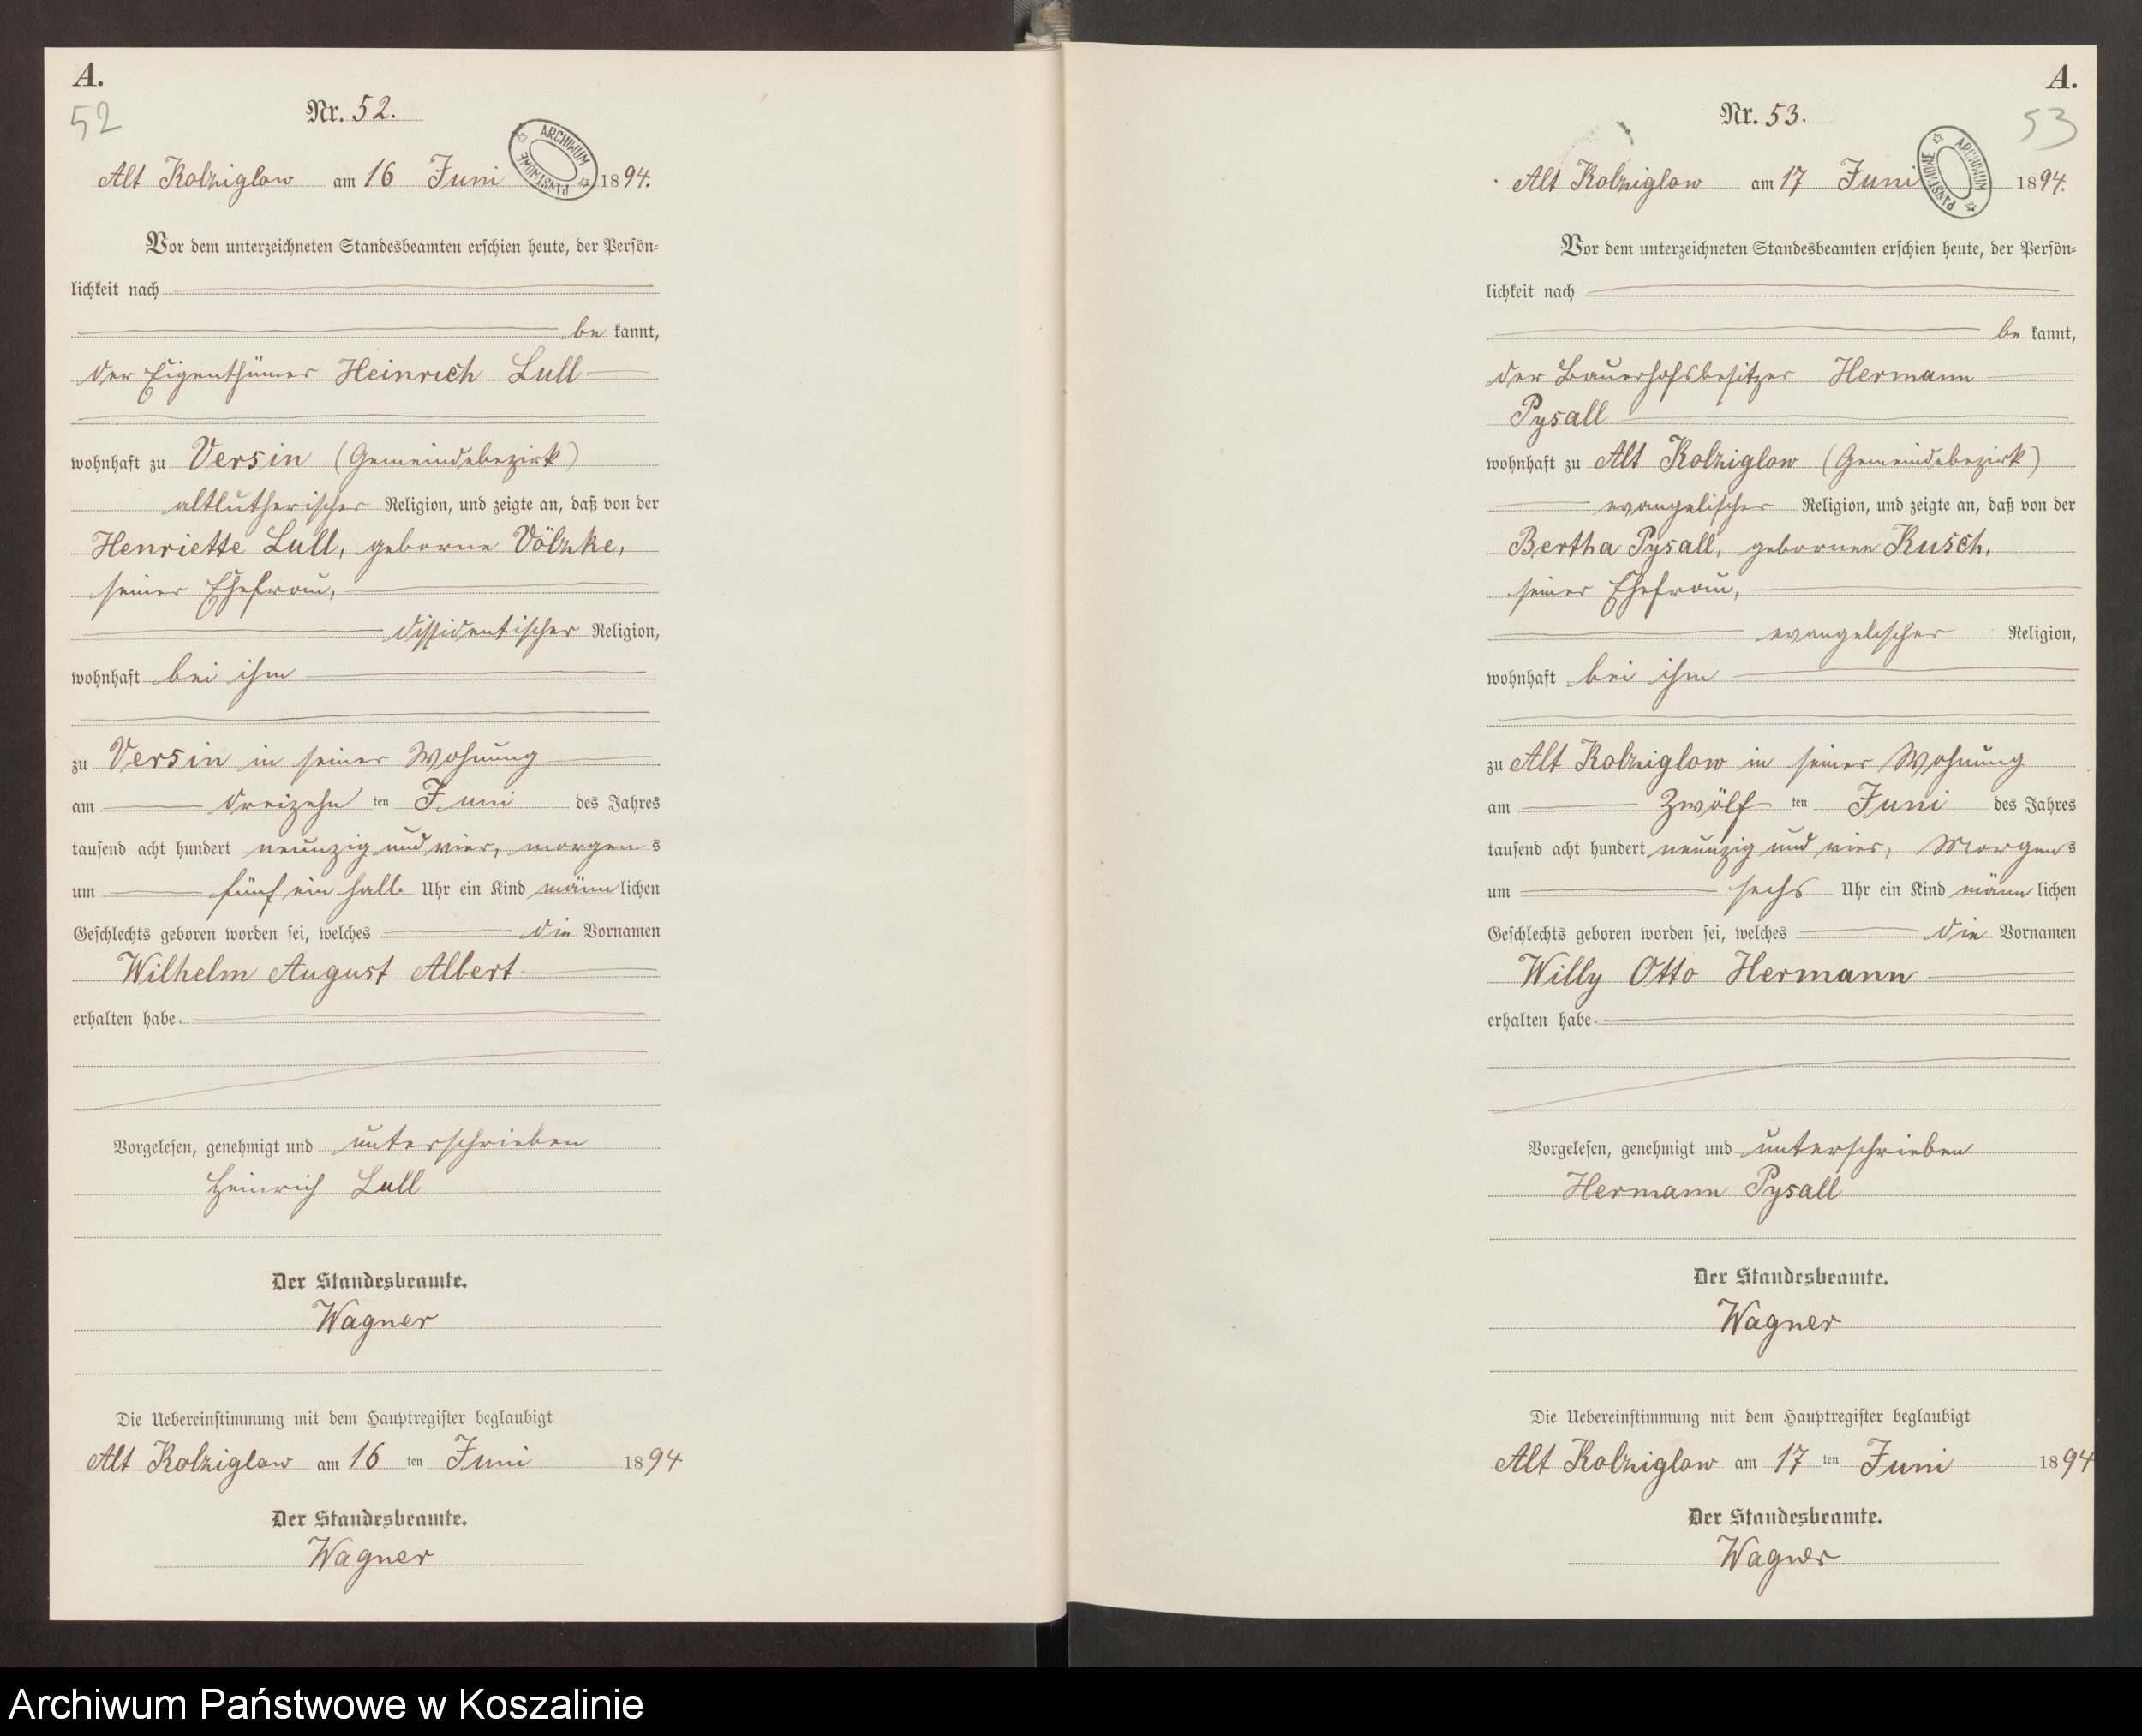 A.
52
Nr. 52.
ARCHIWUM PAŃSTWOWE
Alt Kolziglow am 16 Juni 1894.
Vor dem unterzeichneten Standesbeamten erschien heute, der Persön-
lichkeit nach
be kannt,
der Eigenthümer Heinrich Lull
wohnhaft zu Versin (Gemeindebezirk)
altlutherischer Religion, und zeigte an, daß von der
Henriette Lull, geborne Völzke,
seiner Ehefrau,
dissidentischer Religion,
wohnhaft bei ihm
zu Versin in seiner Wohnung
am dreizehn ten Juni des Jahres
tausend acht hundert neunzig und vier, morgen s
um fünf ein halb Uhr ein Kind männlichen
Geschlechts geboren worden sei, welches die Vornamen
Wilhelm August Albert
erhalten habe.
Vorgelesen, genehmigt und unterschrieben
Heinrich Lull
Der Standesbeamte.
Wagner
Die Uebereinstimmung mit dem Hauptregister beglaubigt
Alt Kolziglow am 16 ten Juni 1894
Der Standesbeamte.
Wagner
A.
53
Nr. 53.
ARCHIWUM PAŃSTWOWE
Alt Kolziglow am 17 Juni 1894.
Vor dem unterzeichneten Standesbeamten erschien heute, der Persön-
lichkeit nach
be kannt,
der Bauerhofsbesitzer Hermann
Pysall
wohnhaft zu Alt Kolziglow (Gemeindebezirk)
evangelischer Religion, und zeigte an, daß von der
Bertha Pysall, gebornen Kusch,
seiner Ehefrau,
evangelischer Religion,
wohnhaft bei ihm
zu Alt Kolziglow in seiner Wohnung
am Zwölf ten Juni des Jahres
tausend acht hundert neunzig und vier, Morgens
um sechs Uhr ein Kind männlichen
Geschlechts geboren worden sei, welches die Vornamen
Willy Otto Hermann
erhalten habe.
Vorgelesen, genehmigt und unterschrieben
Hermann Pysall
Der Standesbeamte.
Wagner
Die Uebereinstimmung mit dem Hauptregister beglaubigt
Alt Kolziglow am 17 ten Juni 1894
Der Standesbeamte.
Wagner
Archiwum Państwowe w Koszalinie